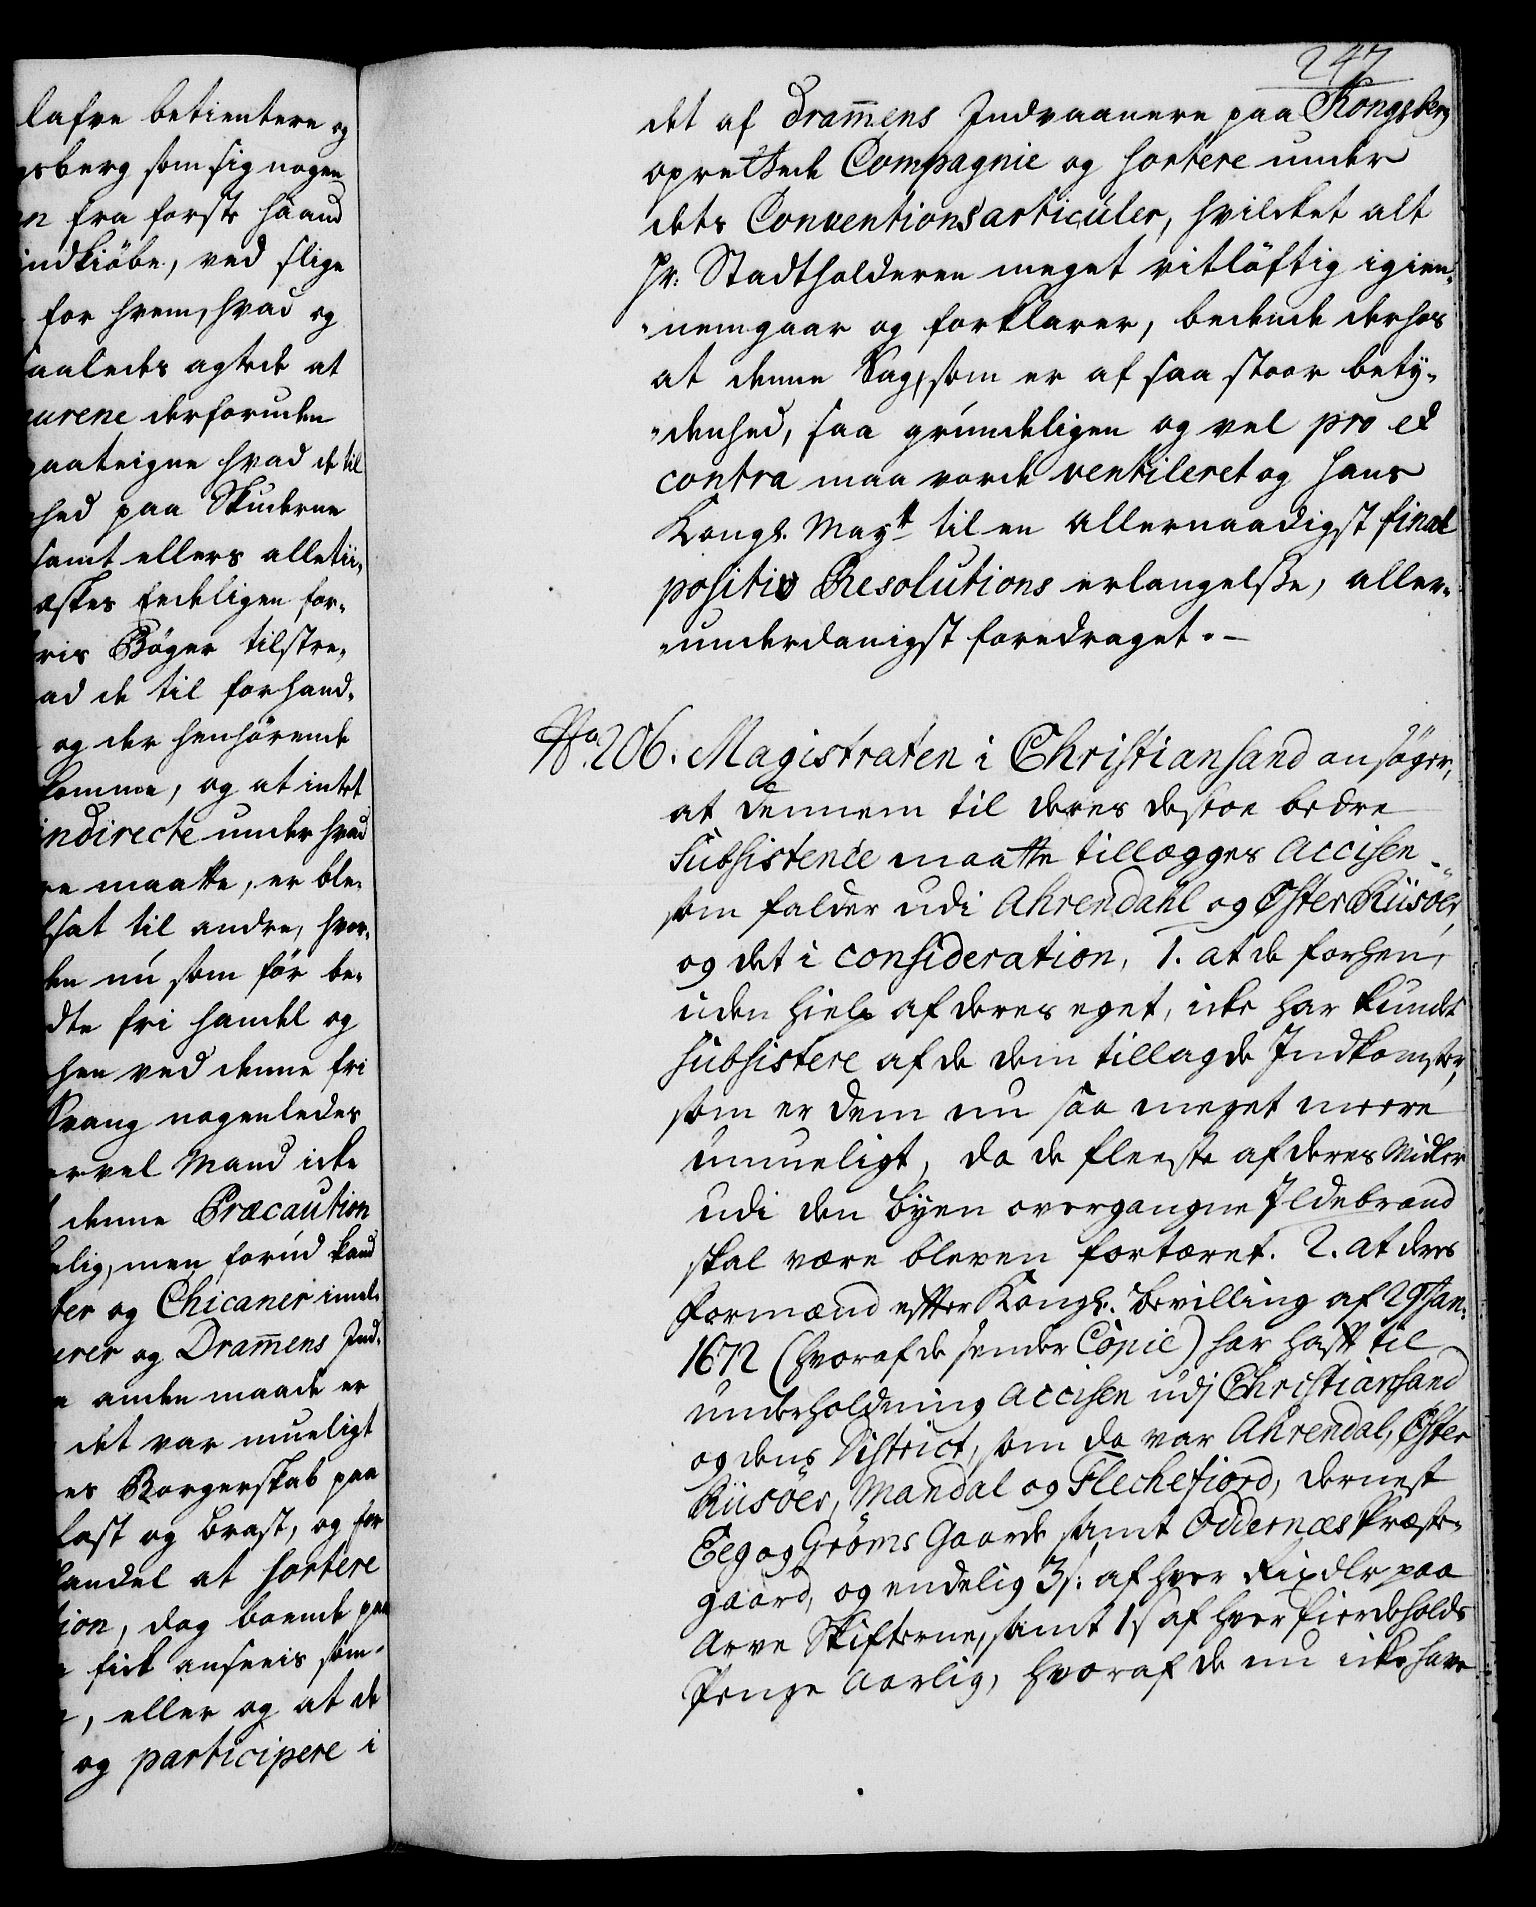 lafve betientere og
gsberg som sig nogen
en fra første haand
indkiöbe, ved slige
for hvem, hvad og
saaledes agtede at
urene derforuden
paateigne hvad de til
hed paa Skuderne
samt ellers alletii„
æstes Eedeligen for„
ris Böger tilstre„
ad de til forhand„
og der henhörende
komme, og at intet
indirecte under hvad
re maatte, er ble„
sat til andre, hvor„
en nú som för be„
dte fri handel og
hen ved denne fri
Svang nogenledes
ervel Mand icke
denne Præcaution
elig, men forúd kand
ter og Chicaner imel„
urer og Dram̄ens Ind„
anden maade er
det var mueligt
es Borgerskab paa
last og brast, og for
handel at sortere
ion, dog boende paa
fick ansees som„
, eller og at de
og participere i
247
det af Dram̄ens Indvaanere paa Kongsberg
oprettede Compagnie og sortere under
dets Conventionsarticuler, hvilcket alt
Hr: Stadtholderen meget vitlöftig igien„
„nemgaar og forklarer, bedende derhos
at denne Sag, som er af saa stoor bety„
„denhed, saa grúndeligen og vel pro et
contra maa vorde ventileret og Hans
Kongl. Maytt til en allernaadigst final
positiv Resolutions erlangelse, aller„
„underdanigst foredraget. —
No. 206. Magistraten i Christiansand ansöger,
at dennem til deres destoe bedre
Subsistence maatte tillægges Accisen
som falder udi Ahrendahl og Öster Riisöer,
og det i consideration, 1. at de forhen,
uden hielp af deres eget, icke har kundet
subsistere af de dem tillagde Indkomster,
som er dem nu saa meget meere
umueligt, da de fleeste af deres Midler
udi den byen overgangne Ildebrand
skal være bleven fortæret. 2. at deres
Formænd efter Kongl. bevilling af 29 Jan:
1672 (hvoraf de sender Copie) har haft til
underholdning Accisen udj Christiansand
og dens District, som da var Ahrendal, Öster
Riisöer, Mandal og Flechefiord, dernest
Eeg og Gröms Gaarde samt Oddernæs Præste„
gaard, og endelig 3 s: af hver Rixdlr paa
Arve Skifterne, samt 1 s af hver Fierdeholds
Penge Aarlig, hvoraf de nu icke have